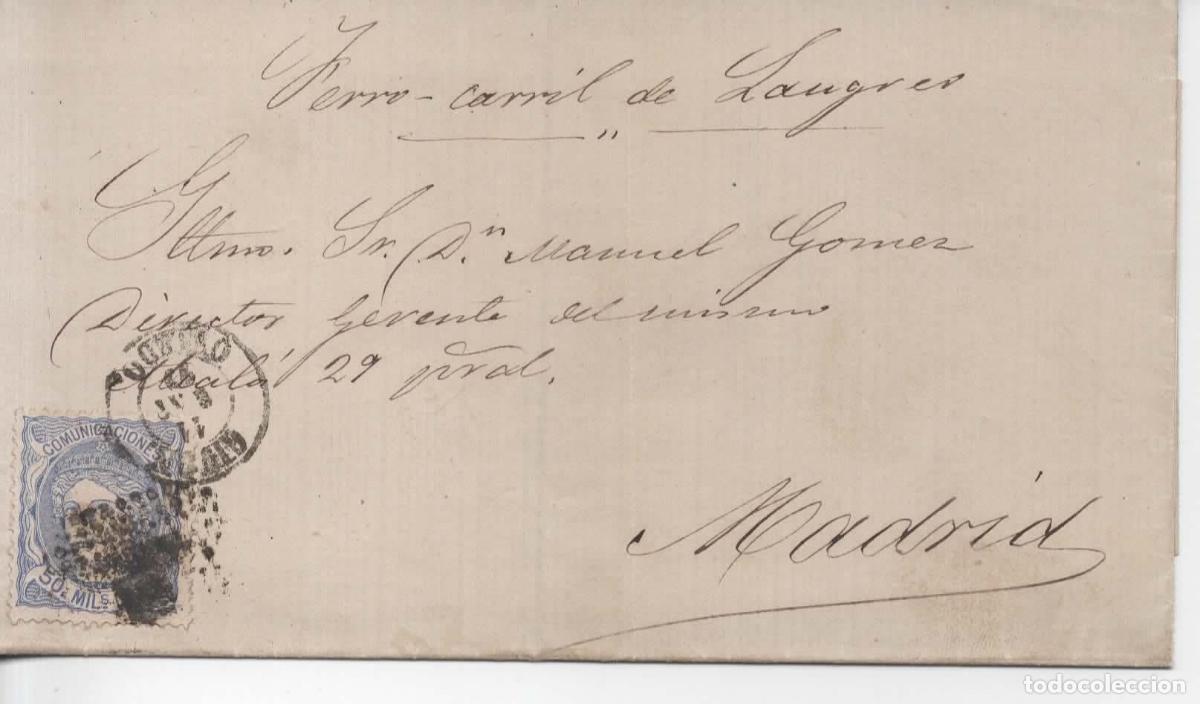 Ferro-carril de Langreo
Iltmo. Sr. Dn. Manuel Gomez
Director Gerente del mismo
Alcalá 29 pral.
Madrid
COMUNICACIONES
50 MILS.
todocoleccion